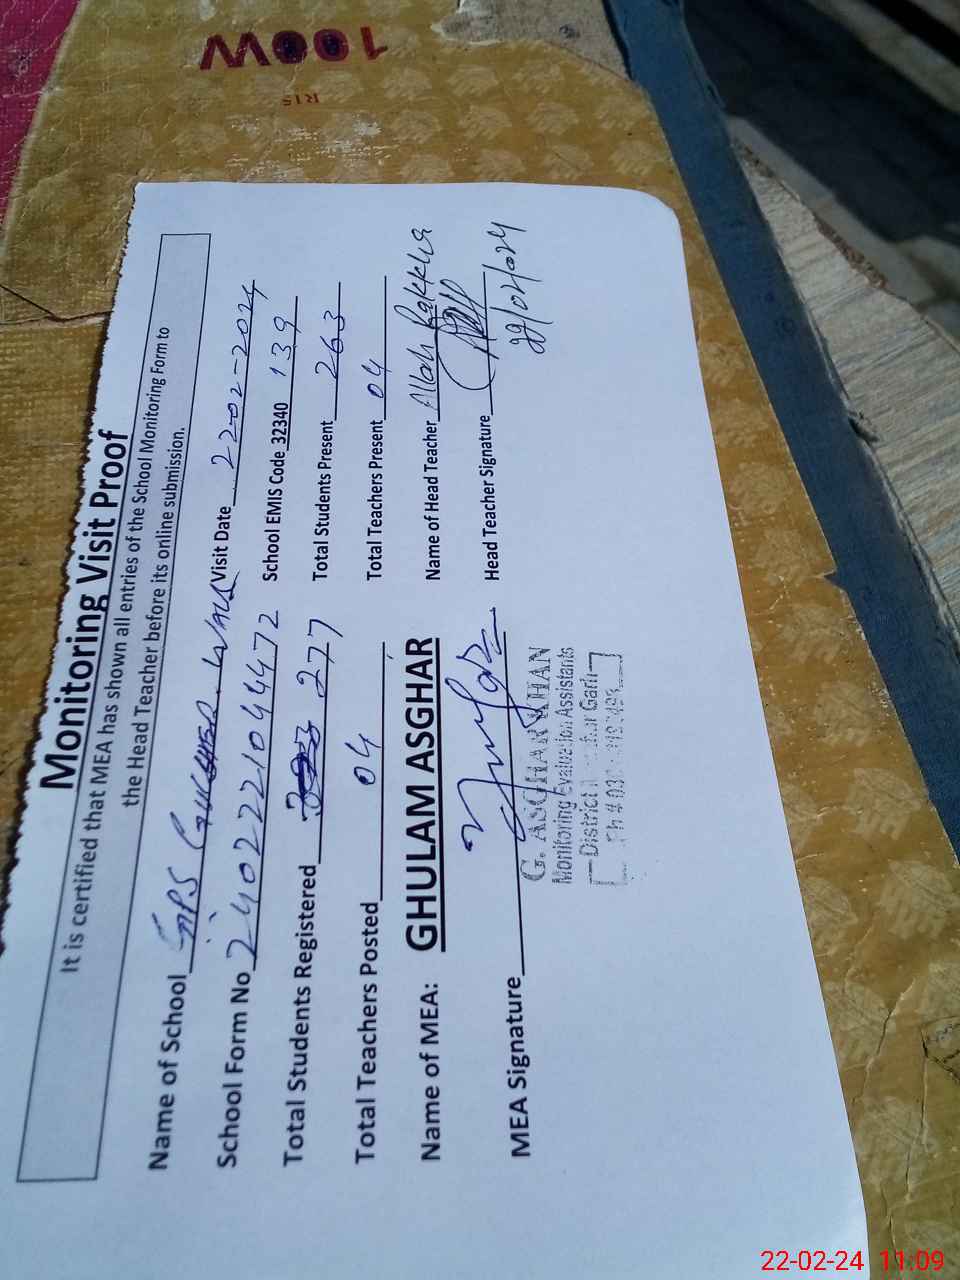 100W
R15
Monitoring Visit Proof
It is certified that MEA has shown all entries of the School Monitoring Form to
the Head Teacher before its online submission.
Name of School GPS Visit Date 22-02-2024
School Form No 2402221104472 School EMIS Code 32340 139
Total Students Registered 277 Total Students Present 263
Total Teachers Posted 04 Total Teachers Present 04
Name of MEA: GHULAM ASGHAR Name of Head Teacher Allah Rakkha
MEA Signature Head Teacher Signature
22/02/2024
G. ASGHAR KHAN
Monitoring Evaluation Assistants
District Garh
Ph #
22-02-24 11:09